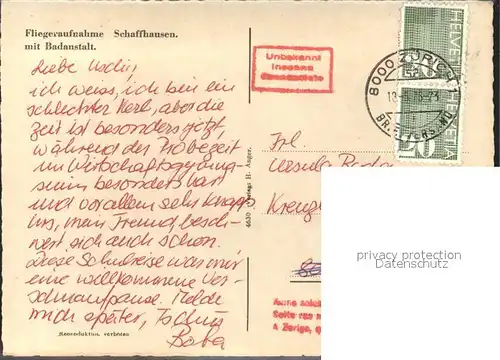 Fliegeraufnahme Schaffhausen.
mit Badanstalt.
Liebe Uschi,
ich weiss, ich bin ein
schlechter Kerl, aber die
Zeit ist besonders jetzt,
während der Probezeit
im Wirtschaftsgymna-
sium besonders hart
und vor allem sehr knapp
uns, mein Freund, besch-
wert sich auch schon.
Diese Schulreise war mir
eine willkommene Ver-
schnaufpause. Melde
mich später, Tschüss
Reproduktion verboten
4630 Verlag H. Auger.
Unbekannt
Inconnu
8000 ZÜRICH 1
BRIEFVERSAND
HELVETIA
20
HELVETIA
20
Frl.
Ursula
privacy protection
Datenschutz